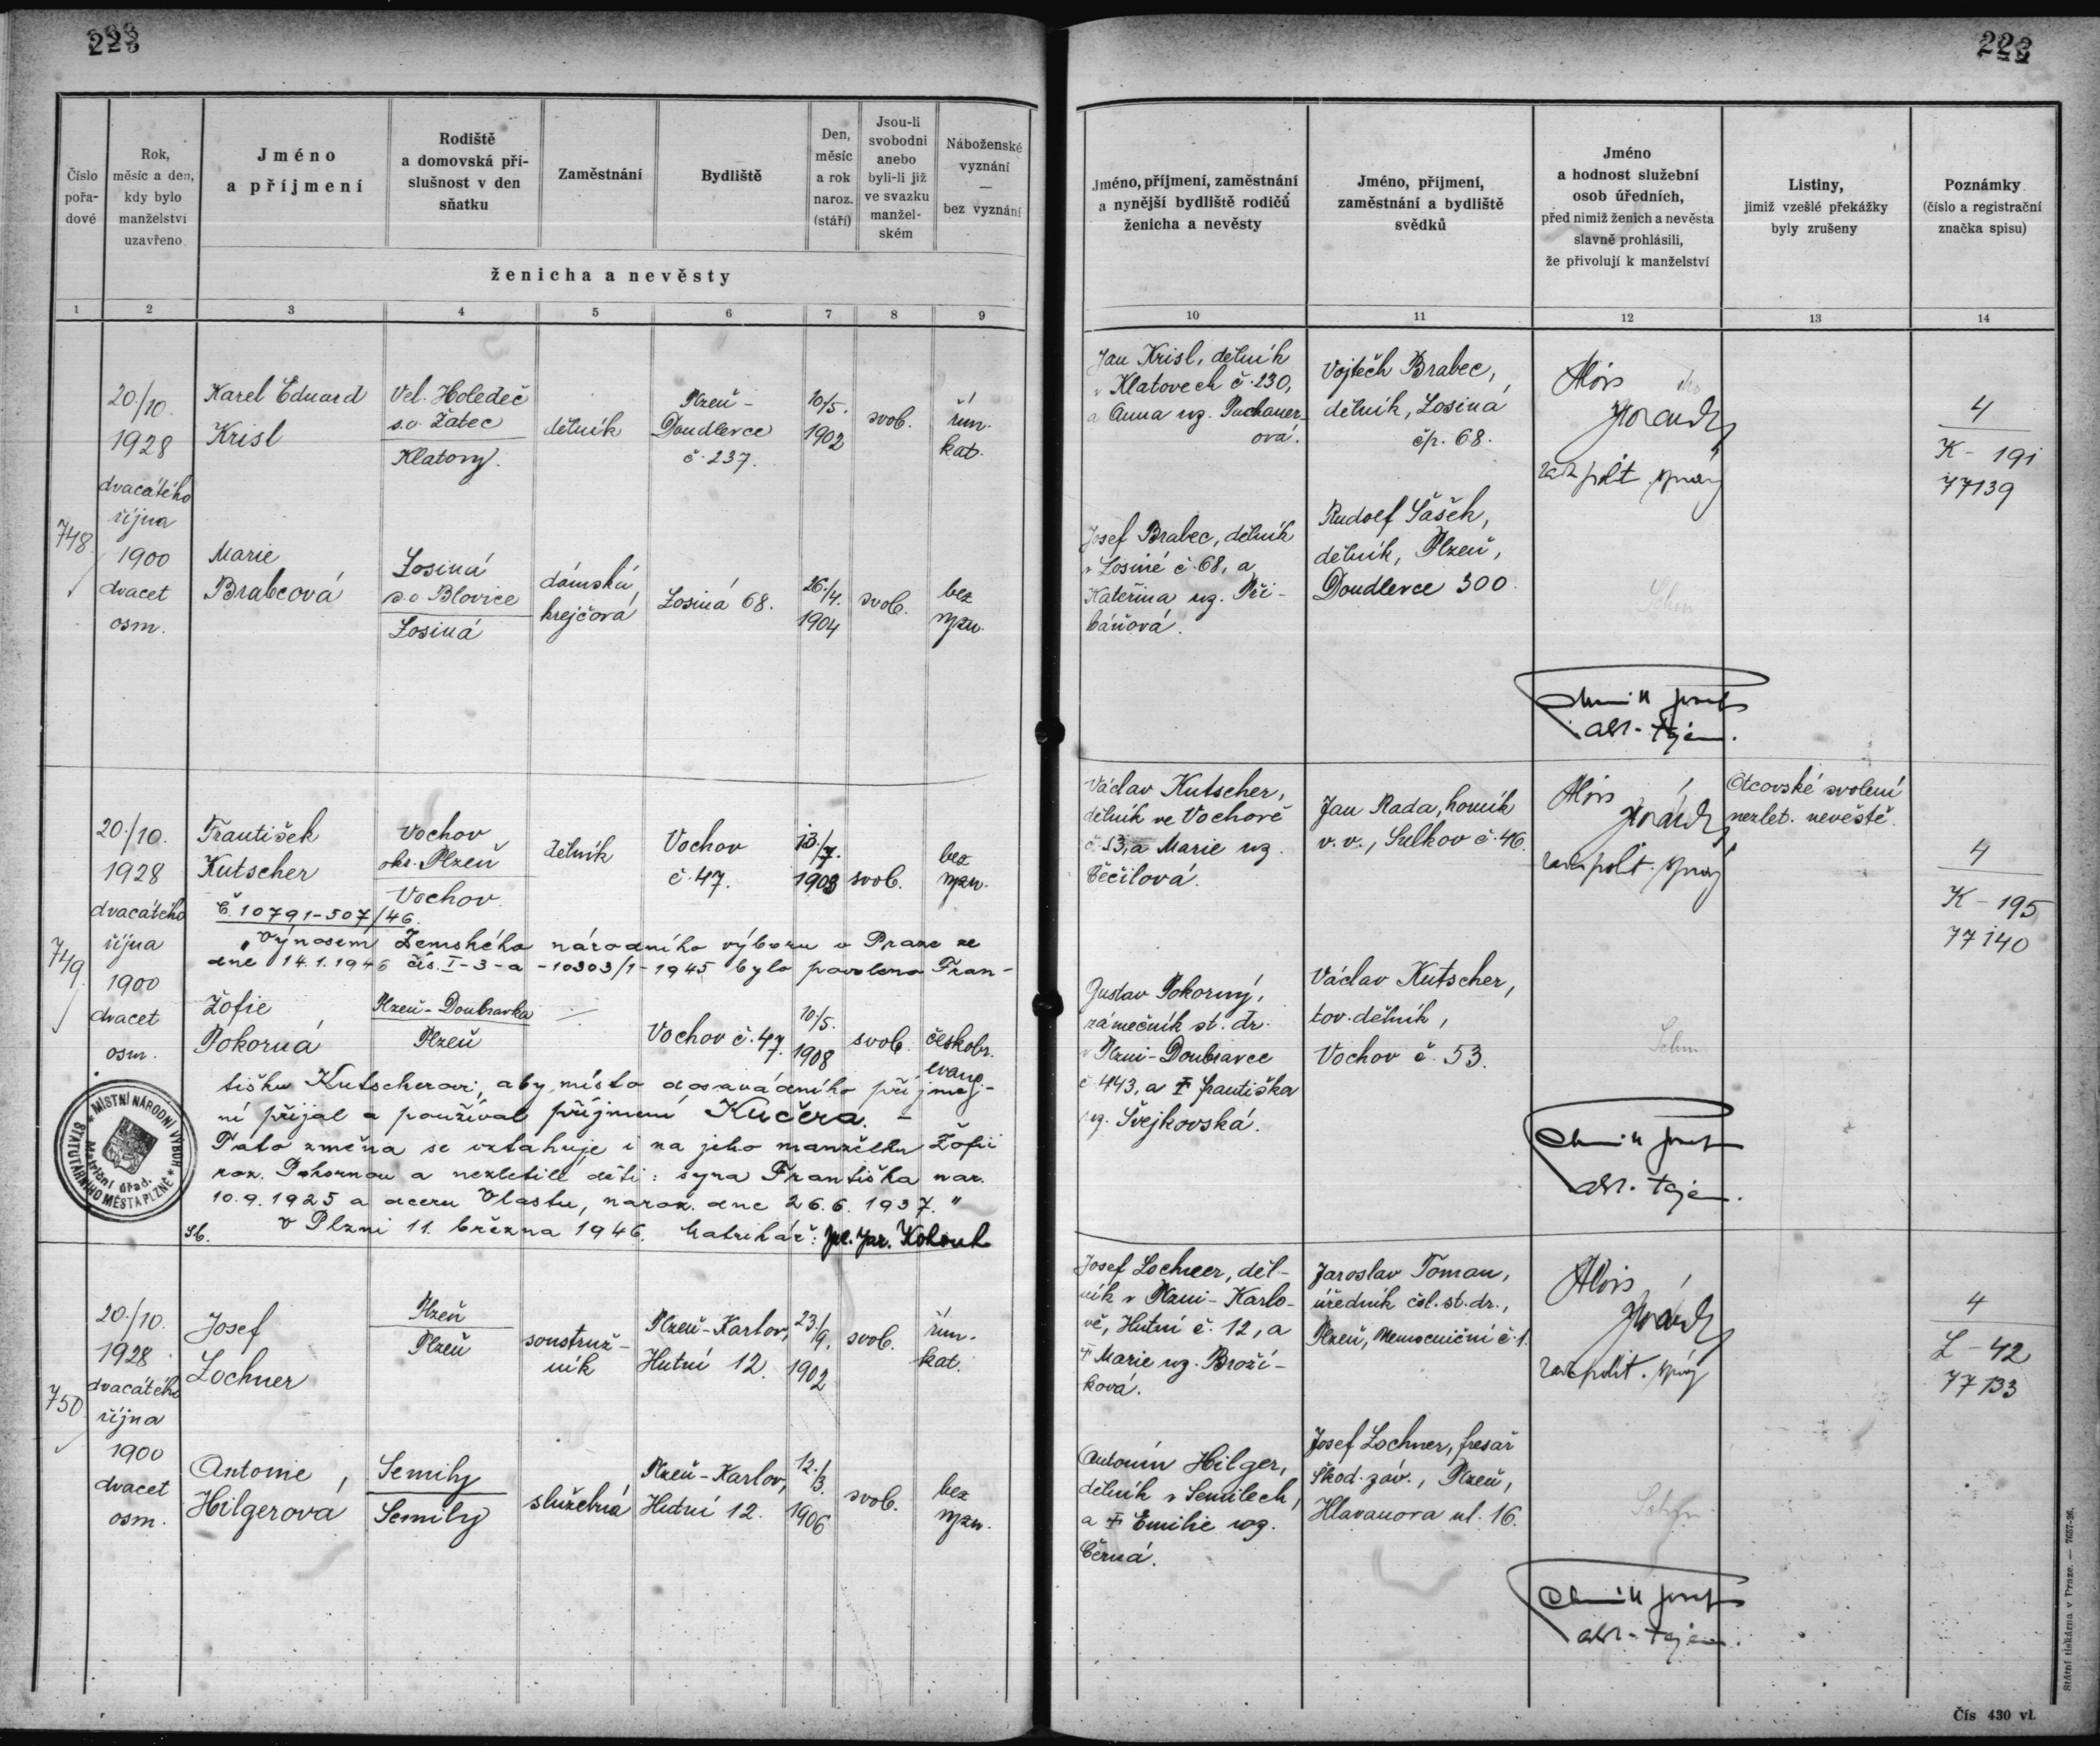 222
222
Číslo pořa-dové
Rok, měsíc a den, kdy bylo manželství uzavřeno
Jméno a příjmení
Rodiště a domovská pří-slušnost v den sňatku
Zaměstnání
Bydliště
Den, měsíc a rok naroz. (stáří)
Jsou-li svobodni anebo byli-li již ve svazku manžel-ském
Náboženské vyznání — bez vyznání
ženicha a nevěsty
Jméno, příjmení, zaměstnání a nynější bydliště rodičů ženicha a nevěsty
Jméno, příjmení, zaměstnání a bydliště svědků
Jméno a hodnost služební osob úředních, před nimiž ženich a nevěsta slavně prohlásili, že přivolují k manželství
Listiny, jimiž vzešlé překážky byly zrušeny
Poznámky (číslo a registrační značka spisu)
1 2 3 4 5 6 7 8 9 10 11 12 13 14
748
20./10.
1928
dvacátého
října
1900
dvacet
osm.
Karel Eduard
Krisl
Vel. Holedeč
s.o. Žatec
Klatovy.
dělník
Plzeň -
Doudlevce
č. 237.
10/5.
1902
svob.
řím.
kat.
Marie
Brabcová
Losiná
s.o Blovice
Losiná
dámská
krejčová
Losiná 68.
26./4.
1904
svob.
bez
vyzn.
Jan Krisl, dělník
v Klatovech č. 230,
a Anna roz. Puchauer-
ová.
Josef Brabec, dělník
v Losiné č. 68, a
Kateřina roz. Při-
báňová.
Vojtěch Brabec,
dělník, Losiná
čp. 68.
Rudolf Šašek,
dělník, Plzeň,
Doudlevce 300.
Alois
rada polit. správy
Josef
adr. tajem.
4
K - 191
77139
749
20./10.
1928
dvacátého
října
1900
dvacet
osm.
František
Kutscher
Vochov
okr. Plzeň
Vochov.
dělník
Vochov
č. 47.
13./7.
1903
svob.
bez
vyzn.
Č. 10791-507/46.
"Výnosem Zemského národního výboru v Praze ze
dne 14.1.1946 čís. I-3-a-10303/1-1945 bylo povoleno Fran-
Žofie
Pokorná
Plzeň-Doubravka
Plzeň
Vochov č. 47.
10./5.
1908
svob.
českobr.
evang.
tišku Kutscherovi, aby místo dosavadního příjme-
ní přijal a používal příjmení Kučera. -
Tato změna se vztahuje i na jeho manželku Žofii
roz. Pokornou a nezletilé děti: syna Františka nar.
10.9.1925 a dceru Vlastu, naroz. dne 26.6.1937."
Sb. V Plzni 11. března 1946. Matrikář: Jar. Kohout
MÍSTNÍ NÁRODNÍ VÝBOR STATUTÁRNÍHO MĚSTA PLZNĚ
Matriční úřad.
Václav Kutscher,
dělník ve Vochově
č. 53, a Marie roz.
Čěčilová.
Gustav Pokorný,
zámečník st. dr.
v Plzni-Doubravce
č 443, a † Františka
roz. Švejkovská.
Jan Rada, horník
v.v., Sulkov č. 46.
Václav Kutscher,
tov. dělník,
Vochov č. 53.
Alois
rada polit. správy
Josef
adr. tajem.
Otcovské svolení
nezlet. nevěstě.
4
K - 195
77140
750
20./10.
1928
dvacátého
října
1900
dvacet
osm.
Josef
Lochner
Plzeň
Plzeň
soustruž-
ník
Plzeň-Karlov,
Hutní 12.
23./9.
1902
svob.
řím.
kat.
Antonie
Hilgerová
Semily
Semily
služebná
Plzeň-Karlov,
Hutní 12.
12./3.
1906
svob.
bez
vyzn.
Josef Lochner, děl-
ník v Plzni-Karlo-
vě, Hutní č. 12, a
† Marie roz. Broží-
ková.
Antonín Hilger,
dělník v Semilech,
a † Emilie roz.
Černá.
Jaroslav Toman,
úředník čsl. st. dr.,
Plzeň, Nemocniční č 1.
Josef Lochner, fresař
škod. záv., Plzeň,
Hlavanova ul. 16.
Alois
rada polit. správy
Josef
adr. tajem.
4
L - 42
77133
Státní tiskárna v Praze. — 7657-26.
Čís 430 vl.